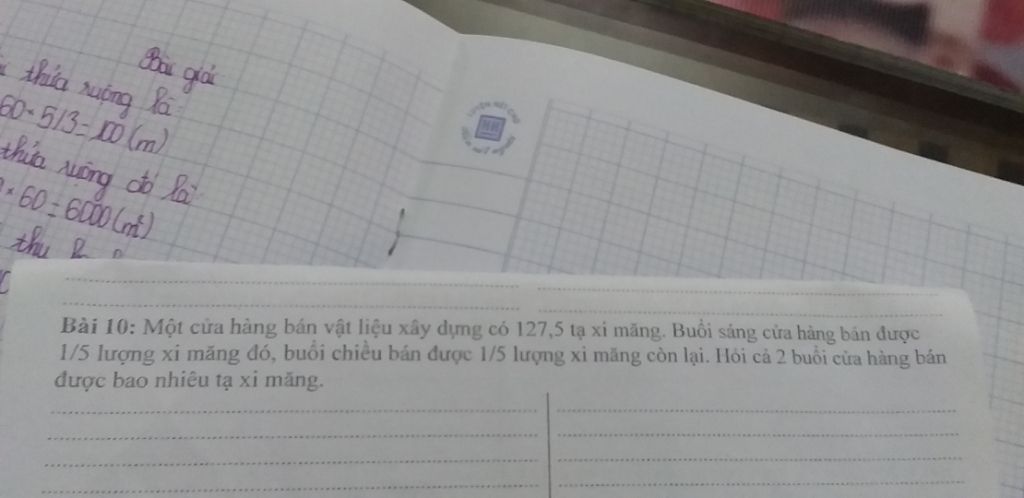 Bài giải
thửa ruộng là:
60 × 5/3 = 100 (m)
thửa ruộng đó là:
× 60 = 6000 (m²)
thu
Bài 10: Một cửa hàng bán vật liệu xây dựng có 127,5 tạ xi măng. Buổi sáng cửa hàng bán được
1/5 lượng xi măng đó, buổi chiều bán được 1/5 lượng xi măng còn lại. Hỏi cả 2 buổi cửa hàng bán
được bao nhiêu tạ xi măng.